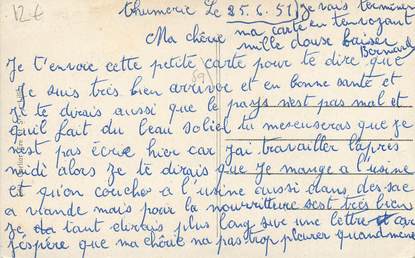 12€
thumerie Le 25.6.51 je vais terminer
ma carte en tenvoyant
Ma chérie mille douse baiser
Bernard
Je t'envoie cette petite carte pour te dire que
Je suis très bien arriver et en bonne santé et
Je te dirais aussi que le pays n'est pas mal et
qu'il fait du beau soliel tu m'escuseras que je
n'est pas écrie hier car j'ai travailler l'après
midi alors Je te dirais que Je mange a l'usine
et qu'on coucher a l'usine aussi dans des sac
a viande mais pour la nourritture s'est très bien
Je tant dirais plus long sur une lettre car
J'éspère que ma chérie na pas trop pleurer quand même